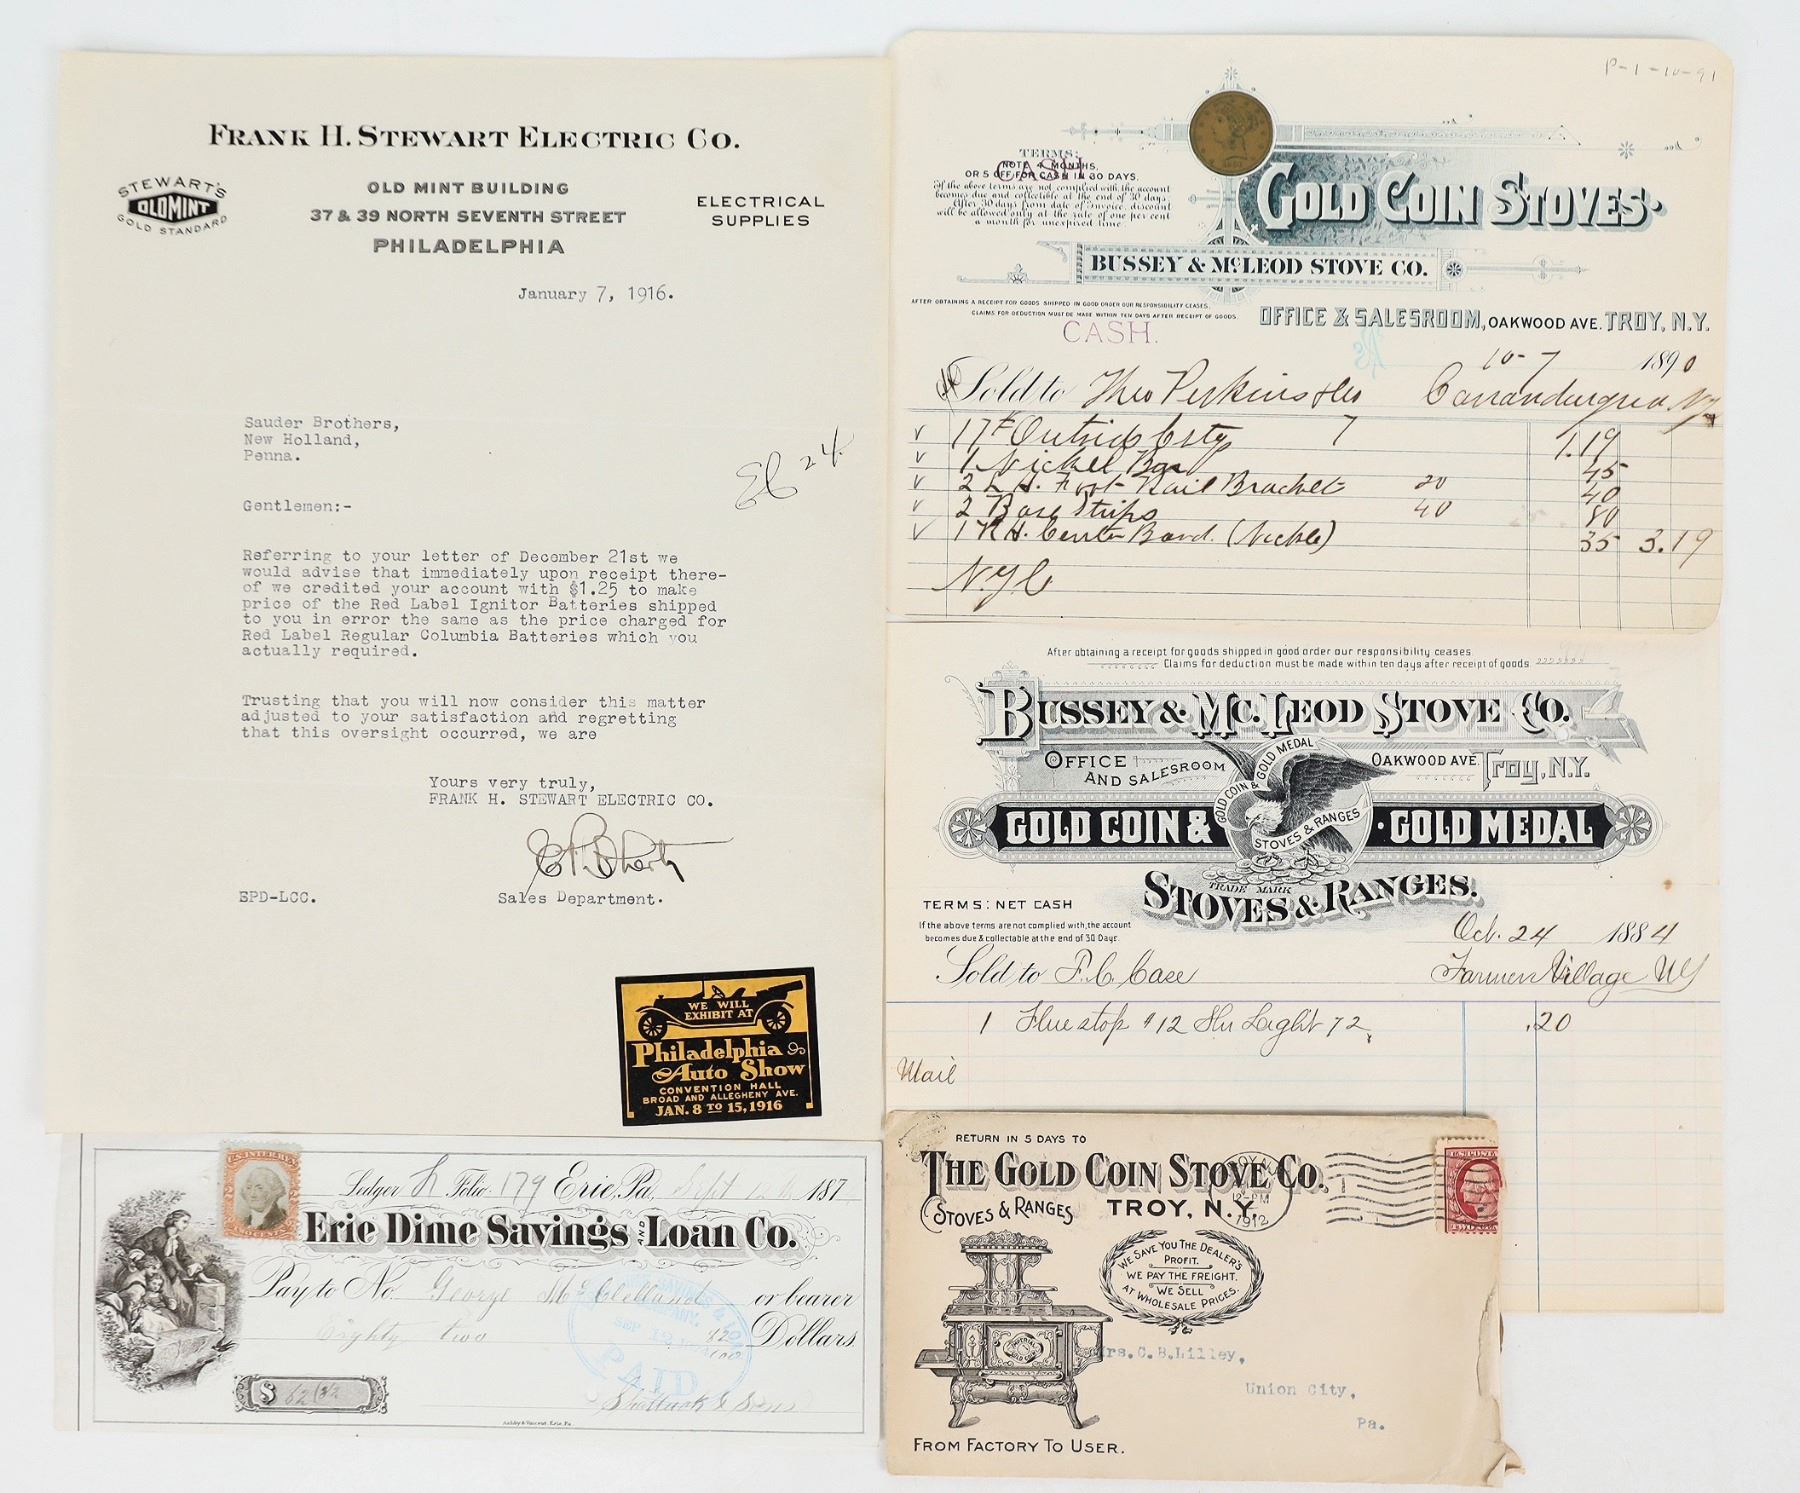 FRANK H. STEWART ELECTRIC CO.
STEWART'S
OLDMINT
GOLD STANDARD
OLD MINT BUILDING
37 & 39 NORTH SEVENTH STREET
PHILADELPHIA
ELECTRICAL
SUPPLIES
January 7, 1916.
Sauder Brothers,
New Holland,
Penna.
24
Gentlemen:-
Referring to your letter of December 21st we
would advise that immediately upon receipt there-
of we credited your account with $1.25 to make
price of the Red Label Ignitor Batteries shipped
to you in error the same as the price charged for
Red Label Regular Columbia Batteries which you
actually required.
Trusting that you will now consider this matter
adjusted to your satisfaction and regretting
that this oversight occurred, we are
Yours very truly,
FRANK H. STEWART ELECTRIC CO.
EPD-LCC.
Sales Department.
WE WILL
EXHIBIT AT
Philadelphia
Auto Show
CONVENTION HALL
BROAD AND ALLEGHENY AVE.
JAN. 8 TO 15, 1916
P-1-10-91
TERMS:
NOTE 4 MONTHS.
CASH
OR 5 OFF FOR CASH IN 30 DAYS.
If the above terms are not complied with, the account
becomes due and collectible at the end of 30 days
After 30 days from date of Invoice, discount
will be allowed only at the rate of one per cent
a month for unexpired time.
GOLD COIN STOVES.
BUSSEY & McLEOD STOVE CO.
AFTER OBTAINING A RECEIPT FOR GOODS SHIPPED IN GOOD ORDER OUR RESPONSIBILITY CEASES.
CLAIMS FOR DEDUCTION MUST BE MADE WITHIN TEN DAYS AFTER RECEIPT OF GOODS.
OFFICE & SALESROOM, OAKWOOD AVE. TROY, N.Y.
CASH.
10-7 1890
Sold to Theo Perkins & Co Canandurgrea. NY
17# Outside Cstgs 7 1.19
1 Nickel Bar 45
2 L.H. Foot Rail Bracket 20 40
2 Base Strips 40 80
1 R.H. Center Band. (Nickle) 35 3.19
N.Y.C
After obtaining a receipt for goods shipped in good order our responsibility ceases.
Claims for deduction must be made within ten days after receipt of goods
BUSSEY & MC.LEOD STOVE CO.
OFFICE
AND SALESROOM
OAKWOOD AVE. TROY, N.Y.
GOLD COIN & GOLD MEDAL
STOVES & RANGES
GOLD COIN & · GOLD MEDAL
TRADE MARK
STOVES & RANGES.
TERMS: NET CASH
If the above terms are not complied with, the account
becomes due & collectable at the end of 30 Days.
Oct. 24 1884
Sold to F. C. Case Farmer Village NY
1 Flue stop #12 Shr Light 72, .20
Mail
U.S. INTER. REV.
Ledger Folio 179 Erie, Pa. Sept 12 187
Erie Dime Savings AND Loan Co.
Pay to No. George McClelland or bearer
Eighty two 32/100 Dollars.
SEP 12
PAID
$ 82 32
Shattuck & Sons
Ashby & Vincent, Erie, Pa.
RETURN IN 5 DAYS TO
THE GOLD COIN STOVE CO.
STOVES & RANGES TROY, N.Y.
12-PM
1912
U.S. POSTA
WE SAVE YOU THE DEALER'S
PROFIT.
WE PAY THE FREIGHT.
WE SELL
AT WHOLESALE PRICES.
IMPERIAL
GOLD COIN
Mrs. C. B. Lilley,
Union City,
Pa.
FROM FACTORY TO USER.